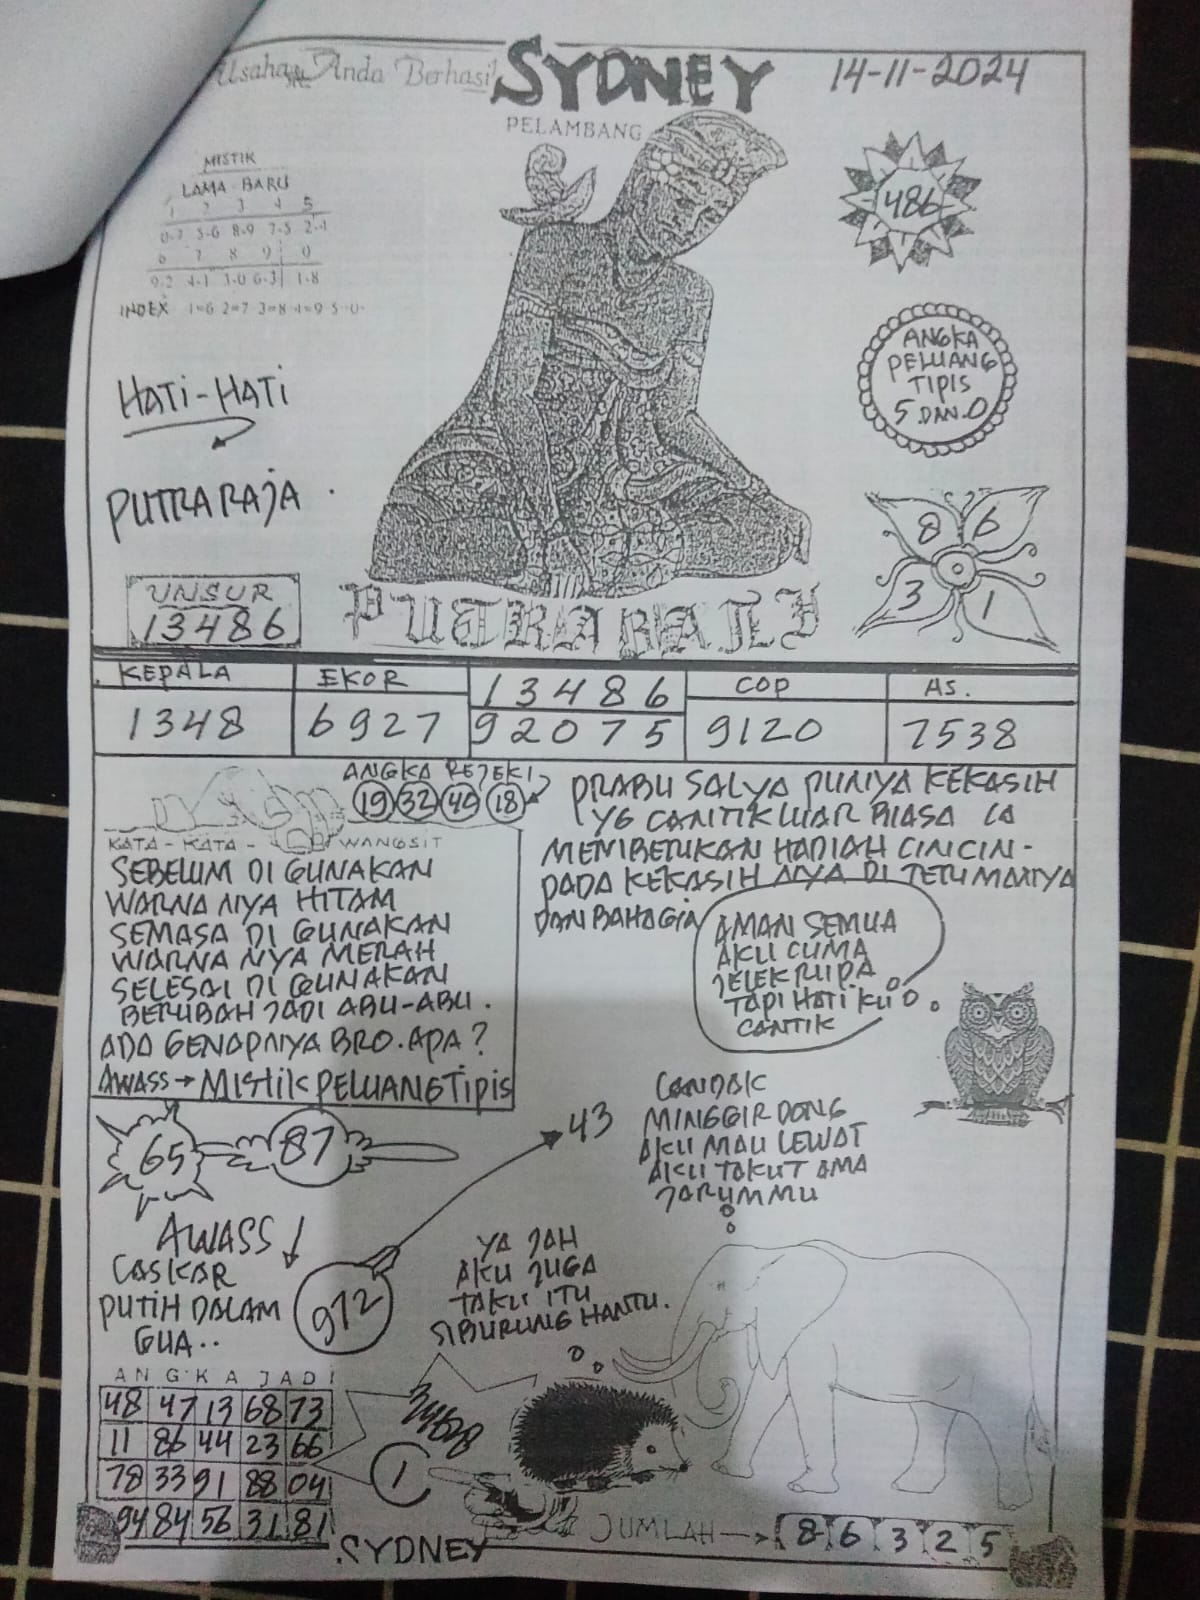 Usaha Anda Berhasil
SYDNEY
14-11-2024
PELAMBANG
MISTIK
LAMA - BARU
1 2 3 4 5
0-7 5-6 8-9 7-5 2-4
6 7 8 9 0
9-2 4-1 3-0 6-3 1-8
INDEX 1=6 2=7 3=8 4=9 5-0-
486
ANGKA
PELUANG
TIPIS
5 DAN.0
HATi-HATI
PUTRA RAJA
8 6
3 1
UNSUR
13486
PUTRA BALI
KEPALA
1348
EKOR
6927
13486
92075
COP
9120
AS.
7538
ANGKA REJEKI
19 32 40 18
KATA - KATA - WANGSIT
SEBELUM DI GUNAKAN
WARNA NYA HITAM
SEMASA DI GUNAKAN
WARNA NYA MERAH
SELESAI DI GUNAKAN
BERUBAH JADI ABU-ABU.
ADA GENAPNYA BRO. APA?
AWASS → MistiK PELUANG TipiS
PRABU SALYA PUNYA KEKASIH
YG CANTIK LUAR BIASA IA
MEMBERIKAN HADIAH CINCIN -
PADA KEKASIH NYA DI TERIMANYA
DAN BAHAGIA
AMAN SEMUA
AKU CUMA
JELEK RUPA
TAPI HATI KU
CANTIK
65 87
43
LANDAK
MINGGIR DONG
AKU MAU LEWAT
AKU TAKUT AMA
JARUMMU
AWASS
LASKAR
PUTIH DALAM
GUA..
972
YA JAH
AKU JUGA
TAKU ITU
SIBURUNG HANTU.
ANGKA JADI
48 47 13 68 73
11 86 44 23 66
78 33 91 88 04
94 84 56 31 81
1
.SYDNEY
JUMLAH → 8 6 3 2 5